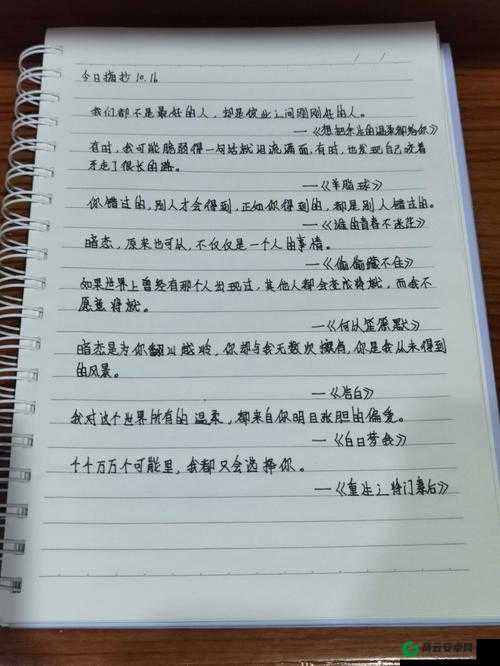 今日摘抄 10.16
我们都不是最好的人，却是彼此之间刚刚好的人。
——《想把余生的温柔都给你》
有时，我可能脆弱得一句话就泪流满面，有时，也发现自己咬着
牙走了很长的路。
——《羊脂球》
你错过的，别人才会得到，正如你得到的，都是别人错过的。
——《谁的青春不迷茫》
暗恋，原来也可以，不仅仅是一个人的事情。
——《偷偷藏不住》
如果世界上曾经有那个人出现过，其他人都会变成将就，而我不
愿意将就。
——《何以笙箫默》
暗恋是为你翻山越岭，你却与我无数次擦肩，你是我从未得到
的风景。
——《告白》
我对这个世界所有的温柔，都来自你明目张胆的偏爱。
——《白日梦我》
千千万万个可能里，我都只会选择你。
——《重生之将门毒后》
云安卓网